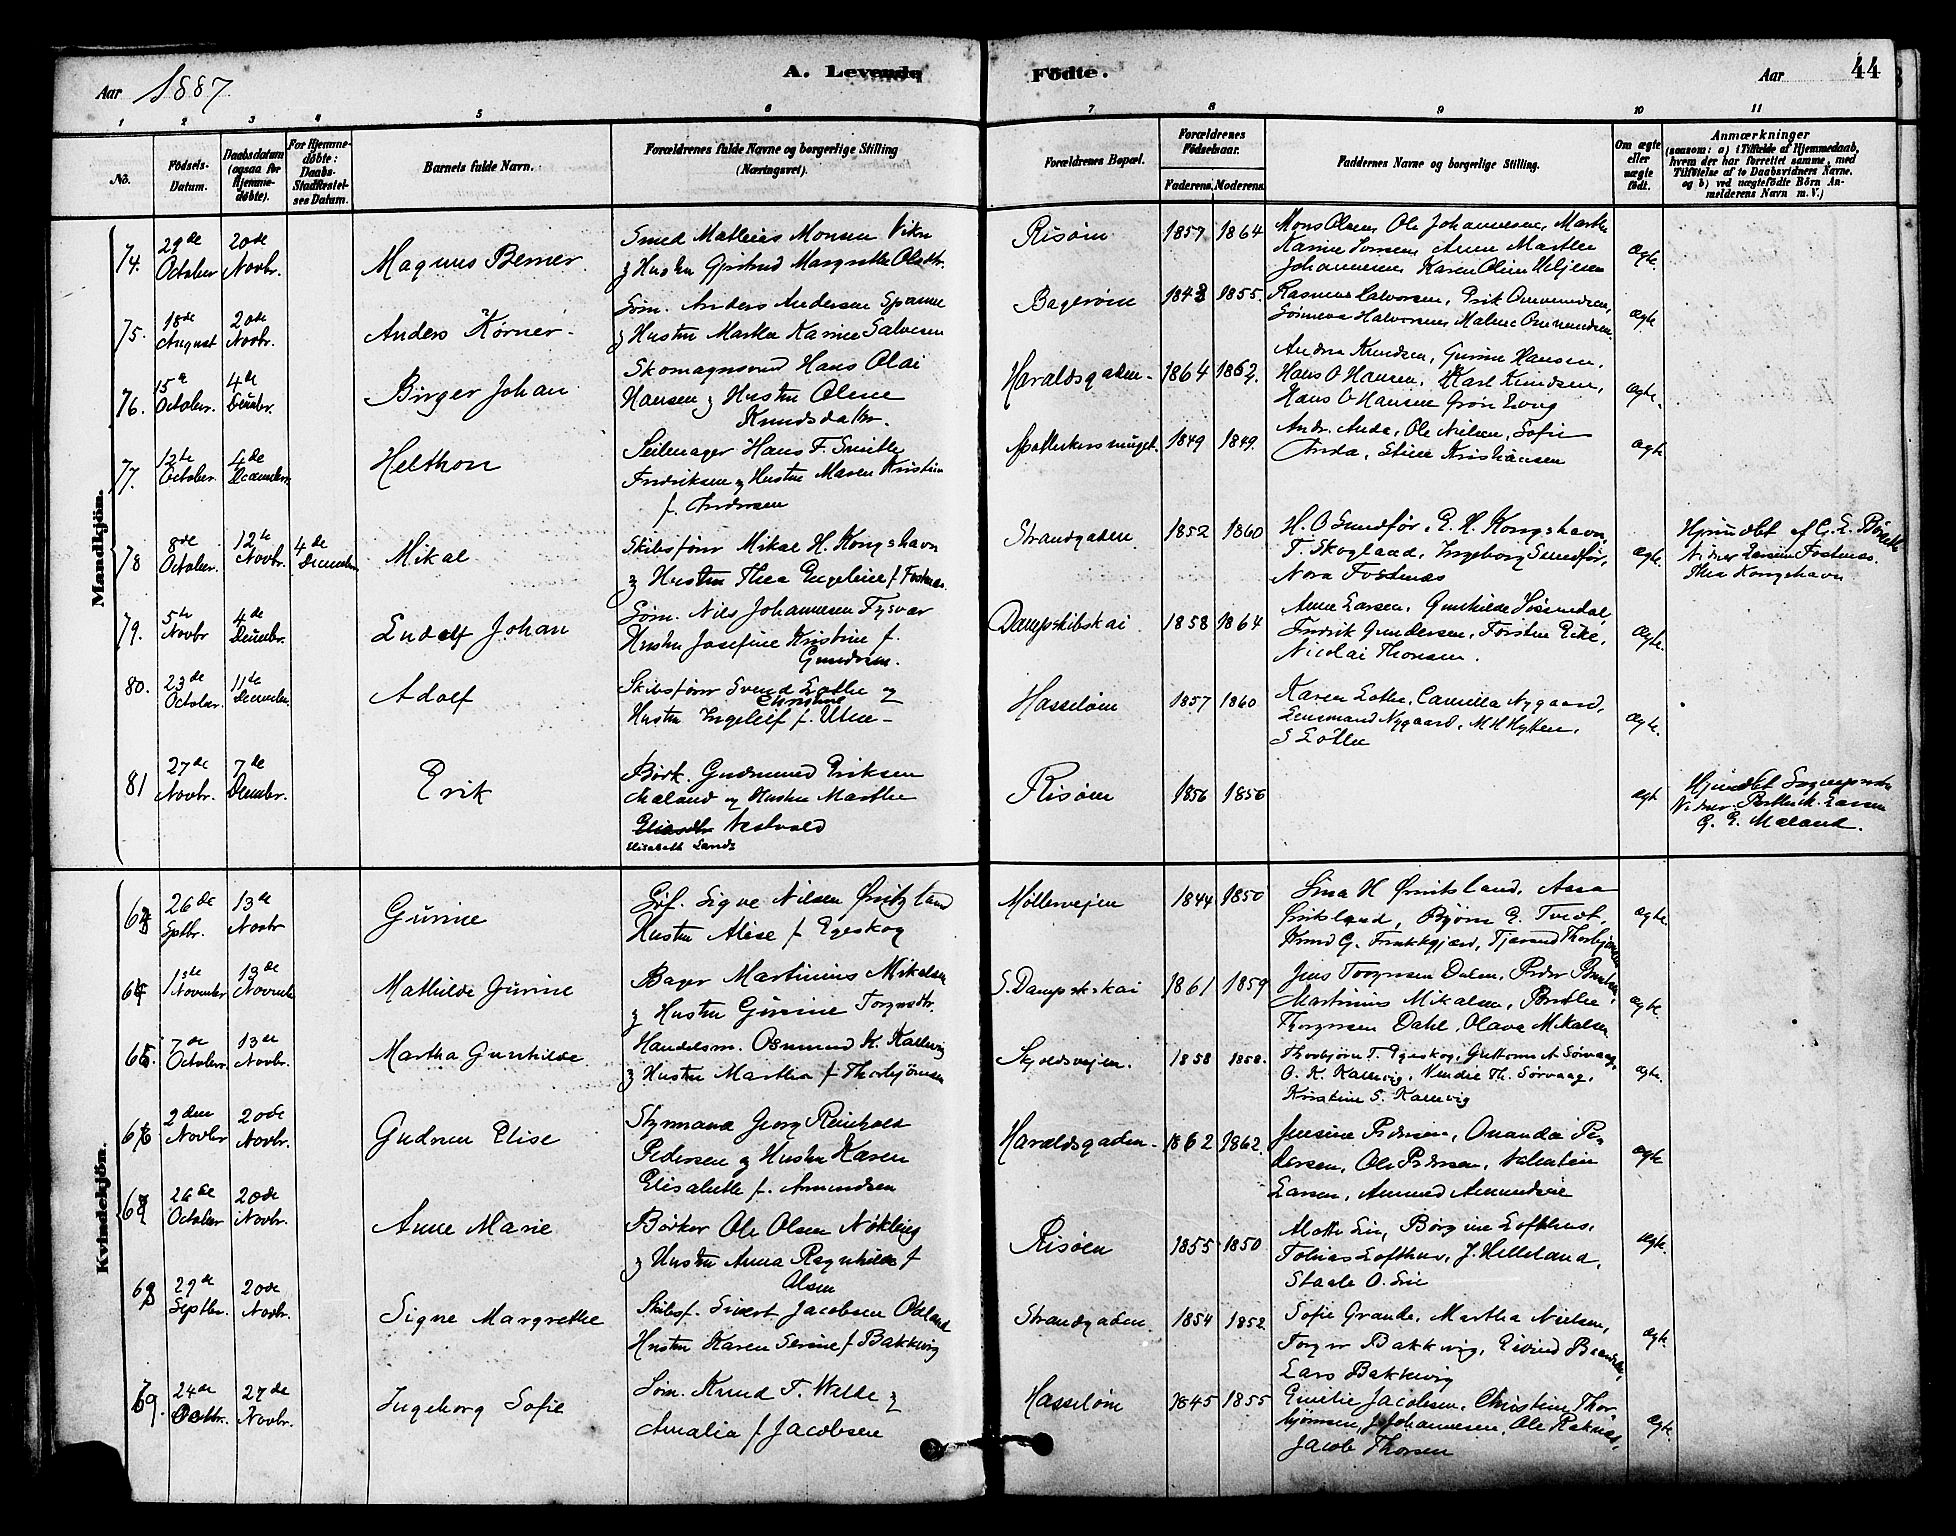 Aar 1887.
A. Levende
Födte.
Aar
44
1 2 3 4 5 6 7 8 9 10 11
No.
Födsels-Datum.
Daabsdatum (ogsaa for Hjemme-döbte).
For Hjemme-döbte: Daabs-Stadfæstel-ses Datum.
Barnets fulde Navn.
Forældrenes fulde Navne og borgerlige Stilling
(Næringsvei).
Forældrenes Bopæl.
Forældrenes Födselsaar.
Faderens. Moderens.
Faddernes Navne og borgerlige Stilling.
Om ægte eller uægte födt.
Anmærkninger
(saasom: a) i Tilfælde af Hjemmedaab,
hvem der har forrettet samme, med
Tilföielse af to Daabsvidners Navne.
og b) ved uægtefödte Börn An-
melderens Navn m. V.)
Mandkjön.
74. 29de October 20de Novbr. Magnus Berner.
Smed Mathias Monsen Vikn
g Hustru Gjertrud Margrethe Olsdtr.
Risøen 1857 1864
Mons Olsen, Ole Johannesen, Marthe
Karine Johannesen Karen Oline
ægte.
75. 18de August 20de Novbr. Anders Körner.
Søm. Anders Andersen Spanne
g Hustru Martha Karine Salvesen
Bagerøen 1843 1855.
Rasmus Halvorsen, Erik Ommundsen,
Halvorsen Malene Ommundsen
ægte
76. 15de October. 4de Decmbr. Birger Johan
Skomagersvend Hans Olai
Hansen g Hustru Oline
Knudsdatter.
Haraldsgaden 1864 1862.
Andrea Knudsen, Gurine Hansen,
Hans O Hansen, Karl Knudsen,
Hans O Hansen
ægte.
77. 12te October. 4de December Helthon
Seilmager Hans F. Smith
Fredriksen g Hustru Maren Kristine
f. Andersen
Apothekersmuget. 1849 1849.
Andr. Anda, Ole Nielsen, Sofie
Anda, Stine Kristiansen
ægte
78 8de October. 12te Novbr. 4de December Mikal
Skibsfører Mikal H. Kongshavn
g Hustru Thea Engeline f Fostnæs
Strandgaden 1852 1860
H. O Sundför, E. H. Kongshavn,
T. Skogland, Ingeborg Sundför,
Nora Fostnæs
ægte.
Hjemdbt af G. E.
Vidner Fostnæs.
Thea Kongshavn
79. 5te Novbr 4de Decmbr. Ludolf Johan
Søm. Nils Johannesen Tysvær
Hustru Josefine Kristine f.
Gundersen.
Dampskibskai 1858 1864
Anne Larsen, Gunhilde
Fredrik Gundersen, Torsten Eike,
Nicolai Thorsen.
ægte.
80. 23de October. 11te December. Adolf
Skibsfører Svend Lothe og
Christine
Hustru Ingeleif f. Utne
Hasseløen 1857 1860
Karen Lothe, Camilla Nygaard,
Lensmand Nygaard, M H Hytten,
S Lothe
ægte.
81 27de Novbr. 7de Decmbr. Erik
Bödk. Gudmund Eriksen
Maland og Hustru Marthe
Eliasdtr Nestvold
Elisabeth Sands
Risøen 1856 1856
ægte
Hjemdbt Sognepræsten
Vidner Larsen
G. E. Maland.
Kvindekjön.
63 26de Septbr. 13de Novbr Gurine
Sigve Nilsen
Hustru Alise f Egeskog
Møllervejen 1844 1850
Bjørn E. Tvedt,
Knud G.
ægte
64 1ste November 13de November Mathilde Gurine
Bager Martinius Mikalsen
g Hustru Gurine Torgersdtr.
S. Dampskskai 1861 1859
Jens Torgersen Dalen, Peder
Martinius Mikalsen,
Thorgersen Dahl, Olava Mikalsen
ægte.
65. 7de October. 13de Novbr. Martha Gunhilde
Handelsm. Osmund K. Kallevig
g Hustru Martha f Thorbjørnsen
Skjoldsvejen. 1858 1858.
Thorbjørn T. Egeskog, Guttorm A Sørvaag,
O. K. Kallevig, Vendie Th. Sørvaag,
Kristine S. Kallevig
ægte.
66 2den Novbr 20de Novbr. Gudrun Elise
Styrmand Georg Reinholdt
Pedersen og Hustru Karen
Elisabeth f. Amundsen
Haraldsgaden 1862 1862.
Jensine Pedersen, Amanda Pe-
dersen, Ole Pedersen, Valentin
Larsen, Amund Amundsen
ægte
67 26de October 20de Novbr. Anne Marie
Bødker Ole Olsen Nökling
g Hustru Anna Ragnhilde f
Olsen
Risøen 1855 1850
Børgine Lofthus,
Tobias Lofthus, J. Helleland,
Staale O.
ægte.
68 29de Septbr. 20de Novbr. Signe Margrethe
Skibsf. Sivert Jacobsen
Hustru Karen Serine f Bakkevig
Strandgaden 1854 1852
Sofie Grande, Martha Nielsen,
Torger Bakkevig, Eivind
Lars Bakkevig
ægte.
69. 24de Octbr. 27de Novbr. Ingeborg Sofie
Søm. Knud T. Walde g
Amalia f Jacobsen
Hasseløen 1845 1855
Emilie Jacobsen, Christine Thor-
bjørnsen, J Johannesen, Ole
Jacob Thorsen
ægte.